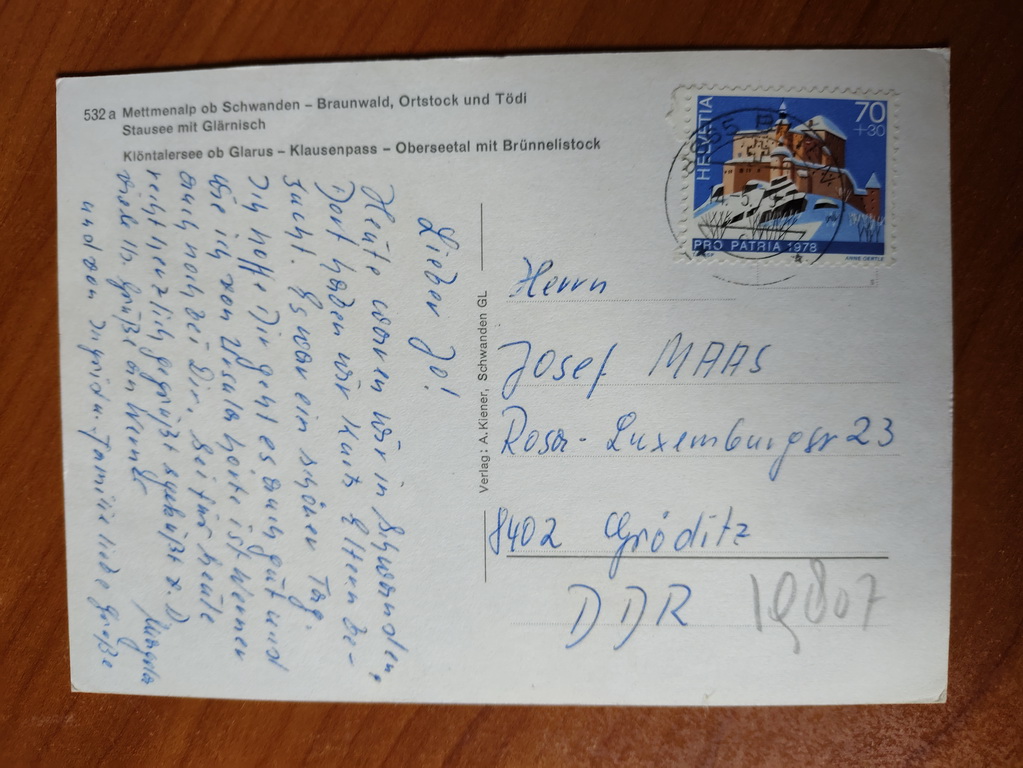 532 a Mettmenalp ob Schwanden – Braunwald, Ortstock und Tödi
Stausee mit Glärnisch
Klöntalersee ob Glarus – Klausenpass – Oberseetal mit Brünnelistock
Lieber Jo!
Heute waren wir in Schwanden,
Dort haben wir Kurts Eltern be-
sucht. Es war ein schöner Tag.
Ich hoffe Dir geht es auch gut und
wie ich von Ursula hörte ist Werner
auch noch bei Dir. Sei für heute
recht herzlich gegrüßt
viele lb. Grüße an Werner
und von Ingrid u. Familie liebe Grüße
Verlag: A. Kiener, Schwanden GL
HELVETIA
70
+30
PRO PATRIA 1978
ANNE OERTLE
Herrn
Josef MAAS
Rosa-Luxemburgstr 23
8402 Gröditz
DDR